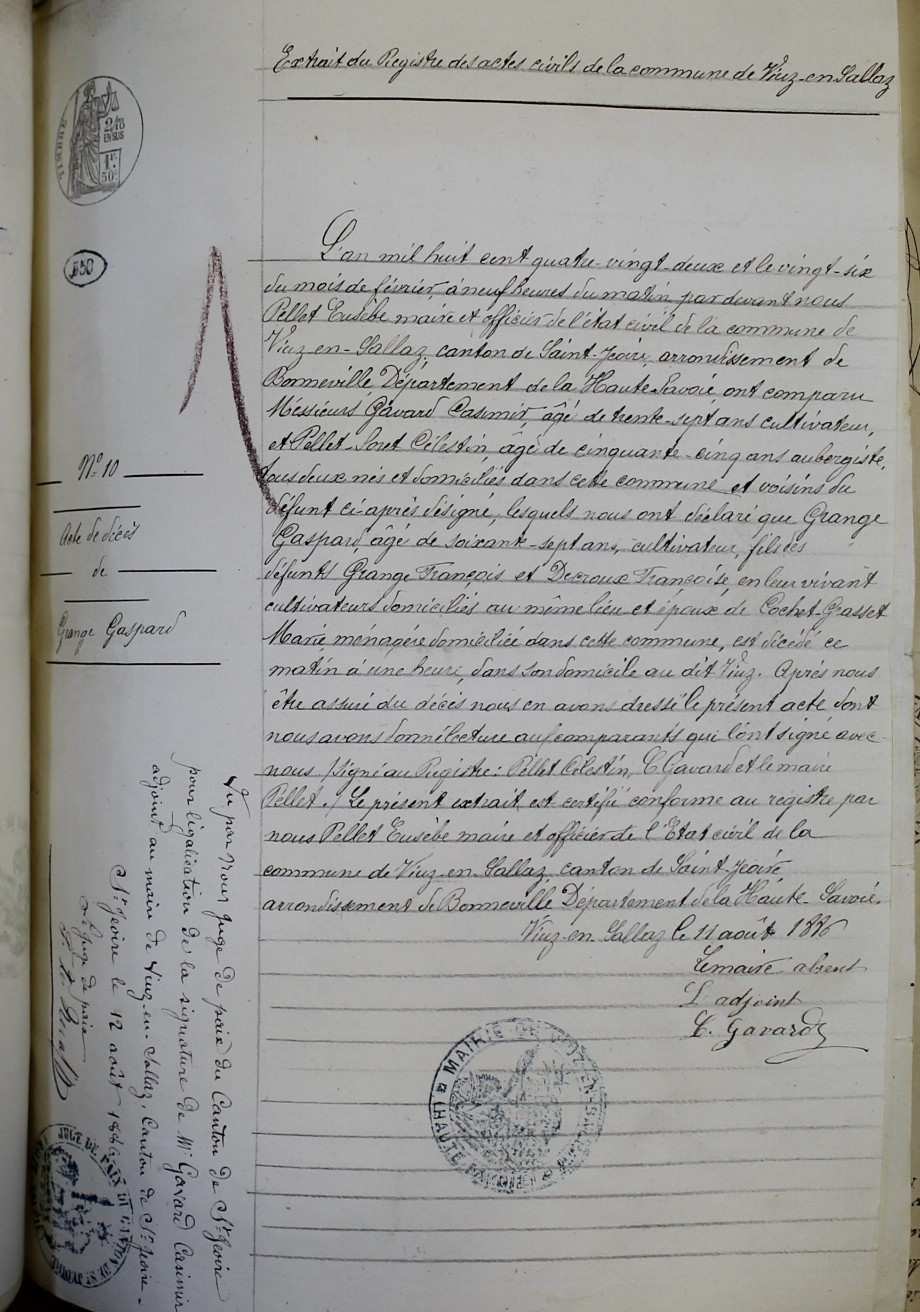 Extrait du Registre des actes civils de la commune de Viuz-en-Sallaz
TIMBRE
2/10
EN SUS
1F.
50c.
550
L'an mil huit cent quatre-vingt-deux et le vingt-six
du mois de février, à neuf heures du matin par devant nous
Pellet Eusèbe maire et officier de l'état civil de la commune de
Viuz-en-Sallaz, canton de Saint-Jeoire, arrondissement de
Bonneville, Département de la Haute-Savoie, ont comparu
Messieurs Gavard Casimir, âgé de trente-sept ans cultivateur,
et Pellet-Joret Célestin, âgé de cinquante-cinq ans aubergiste,
tous deux nés et domiciliés dans cette commune et voisins du
défunt ci-après désigné, lesquels nous ont déclaré que Grange
Gaspard, âgé de soixante-sept ans, cultivateur, fils des
défunts Grange François et Decroux Françoise, en leur vivant
cultivateurs domiciliés au même lieu et époux de Cochet-Grasset
Marie, ménagère domiciliée dans cette commune, est décédé ce
matin à une heure, dans son domicile au dit Viuz. Après nous
être assuré du décès nous en avons dressé le présent acte dont
nous avons donné lecture aux comparants qui l'ont signé avec
nous /signé au Registre: Pellet Célestin, C. Gavard et le maire
Pellet./ Le présent extrait est certifié conforme au registre par
nous Pellet Eusèbe maire et officier de l'Etat civil de la
commune de Viuz-en-Sallaz, canton de Saint-Jeoire
arrondissement de Bonneville Département de la Haute-Savoie.
Viuz-en-Sallaz le 11 août 1886
Le maire absent
L'adjoint
C. Gavard
MAIRIE DE VIUZ-EN-SALLAZ
(HAUTE SAVOIE)
No 10
Acte de décès
de
Grange Gaspard
Vu par nous juge de paix du Canton de St Jeoire
pour légalisation de la signature de Mr Gavard Casimir
adjoint au maire de Viuz-en-Sallaz, Canton de St Jeoire.
St Jeoire le 12 août 1886
Le Juge de paix
JUGE DE PAIX DU CANTON DE ST JEOIRE